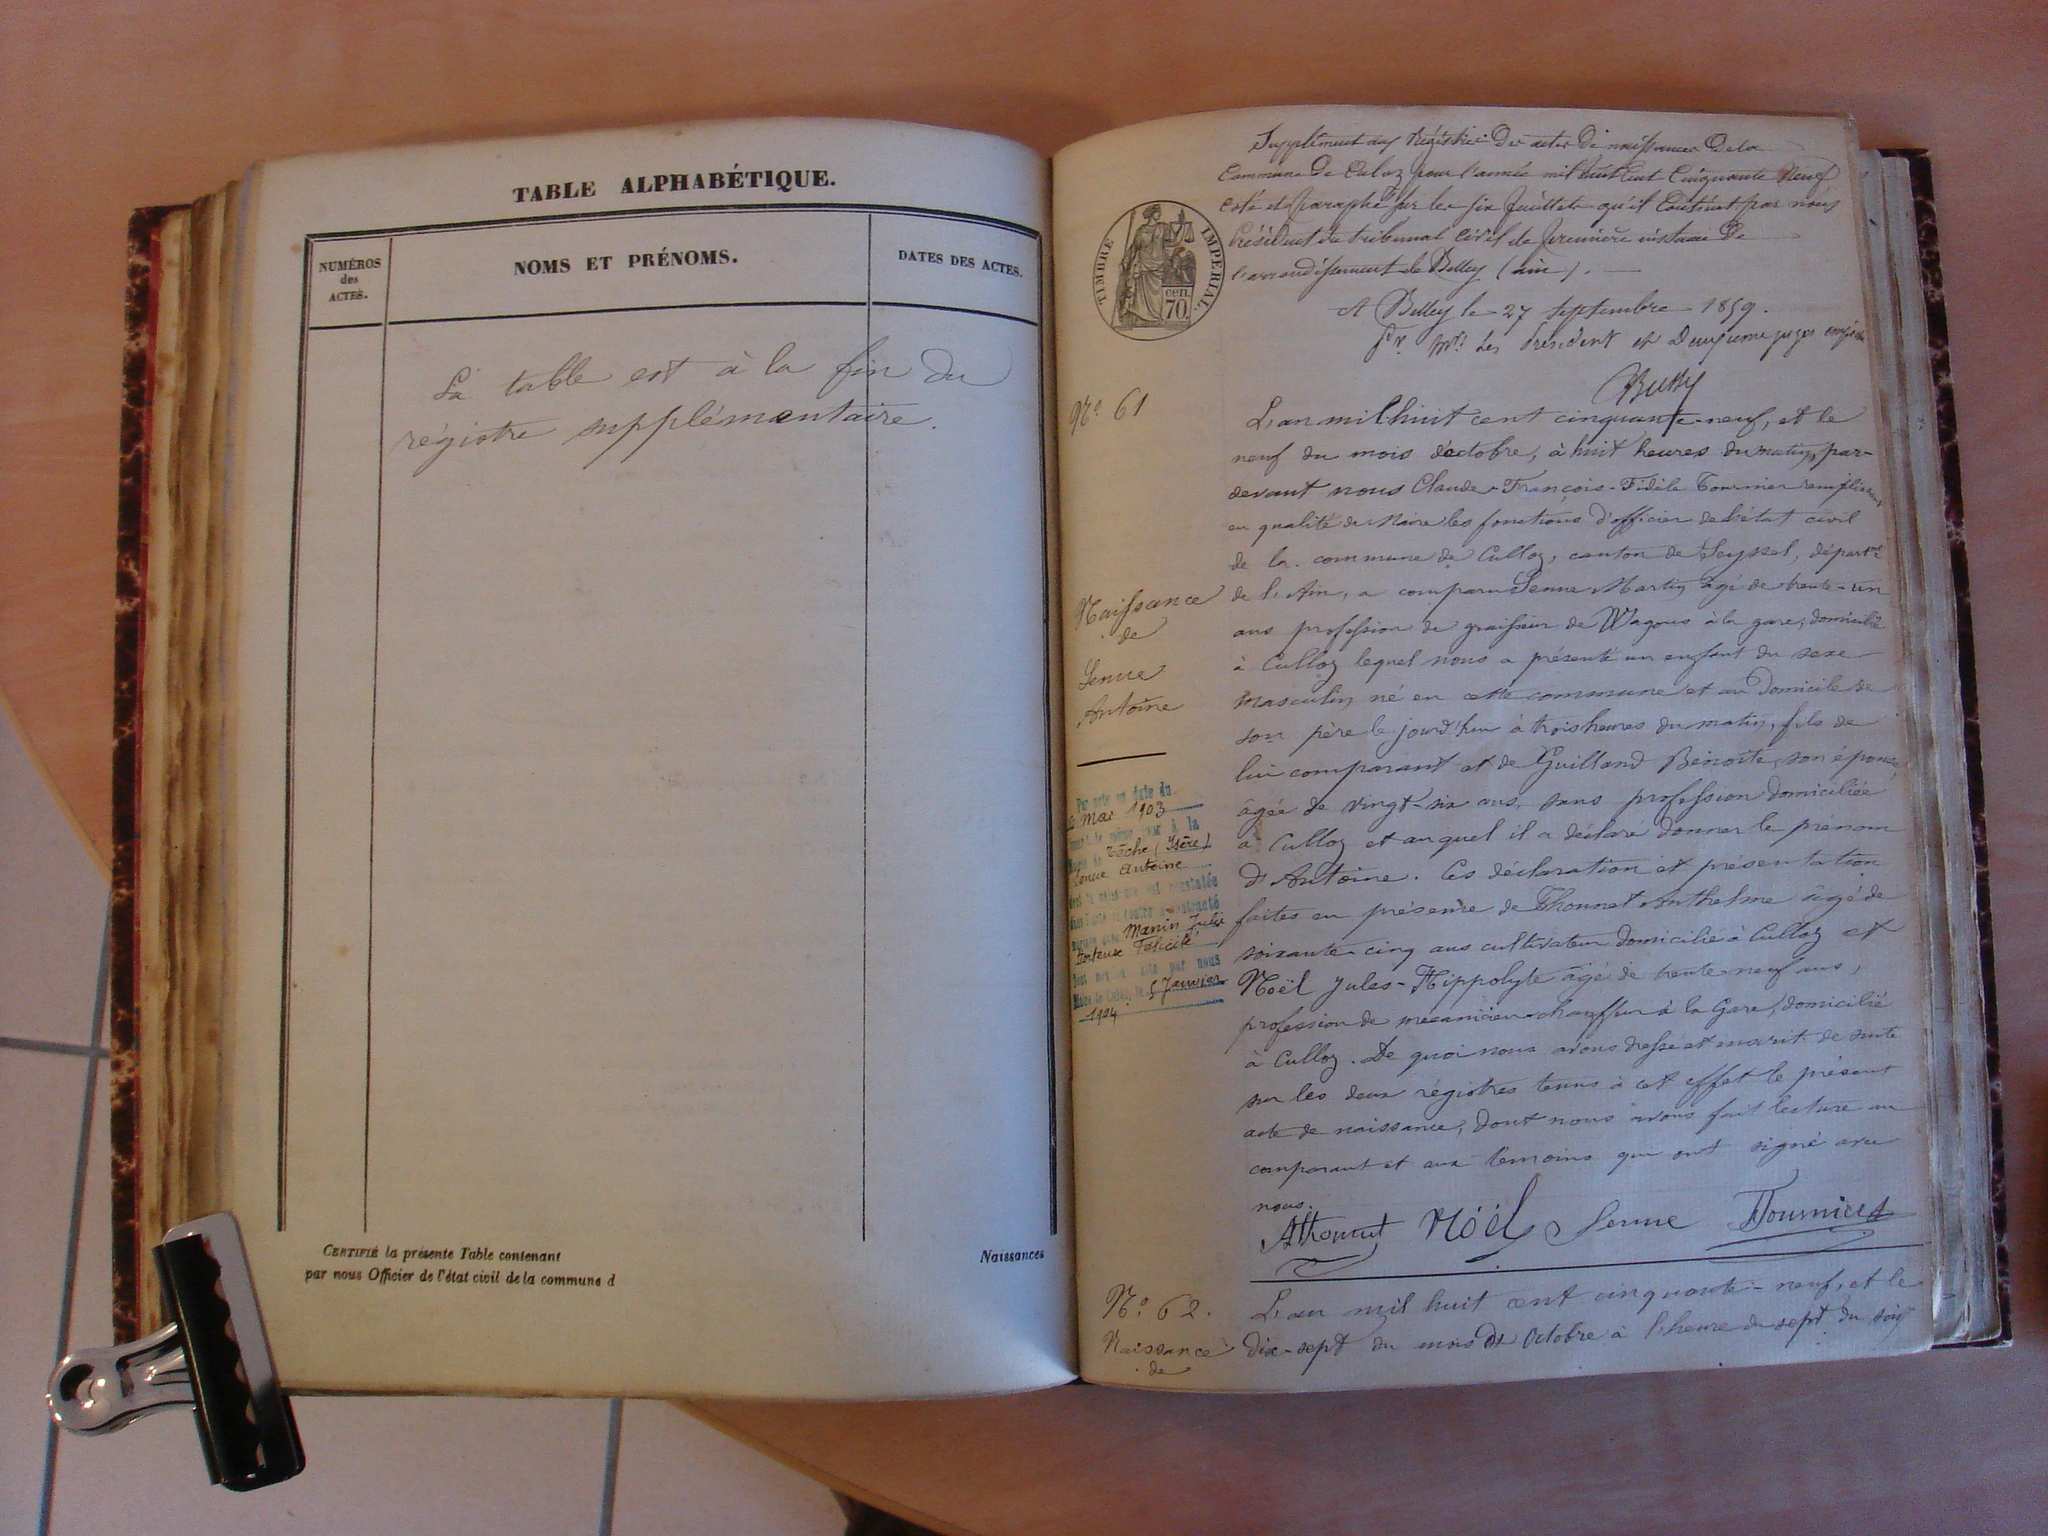 TABLE ALPHABÉTIQUE.
NUMÉROS
des
ACTES.
NOMS ET PRÉNOMS.
DATES DES ACTES.
La table est à la fin du
régistre supplémentaire.
CERTIFIÉ la présente Table contenant
par nous Officier de l'état civil de la commune d
Naissances
Supplément aux Régistre des actes de naissances de la
Commune de Culoz pour l'année mil huit cent Cinquante Neuf
coté et paraphé par les six feuillets qu'il Contient par nous
Président du tribunal Civil de première instance de
l'arrondissement de Belley (ain).
A Belley le 27 septembre 1859.
TIMBRE IMPÉRIAL.
cen.
70.
No. 61
Naissance
de
Senne
Antoine
L'an mil huit cent cinquante-neuf, et le
neuf du mois d'octobre, à huit heures du matin, par-
devant nous Claude-François-Fidèle Tournier remplissant
en qualité de Maire les fonctions d'officier de l'état civil
de la commune de Culloz, canton de Seyssel, départt
de l'Ain, a comparu Senne Martin agé de trente-un
ans profession de graisseur de Wagons à la gare, domicilié
à Culloz lequel nous a présenté un enfant du sexe
masculin né en cette commune et au domicile de
son père le jourd'hui à trois heures du matin, fils de
lui comparant et de Guilland Benoite, son épouse,
âgée de vingt-six ans, sans profession domiciliée
à Culloz et auquel il a déclaré donner le prénom
d'Antoine. Ces déclaration et présentation
faites en présence de Thonnet Anthelme âgé de
soixante-cinq ans cultivateur domicilié à Culloz et
Noël Jules-Hippolyte âgé de trente-neuf ans,
profession de mécanicien-chauffeur à la Gare, domicilié
à Culloz. De quoi nous avons dressé et inscrit de suite
sur les deux régistres tenus à cet effet le présent
acte de naissance, dont nous avons fait lecture au
comparant et aux témoins qui ont signé avec
nous.
Par acte en date du
Mai 1903
(Isère)
Senne Antoine
Manin Julie
Hortense Félicité
par nous
5 Janvier
1904
AThonnet Noël Senne Tournier
No. 62.
Naissance
de
L'an mil huit cent cinquante-neuf, et le
dix-sept du mois d'Octobre à l'heure de sept du soir